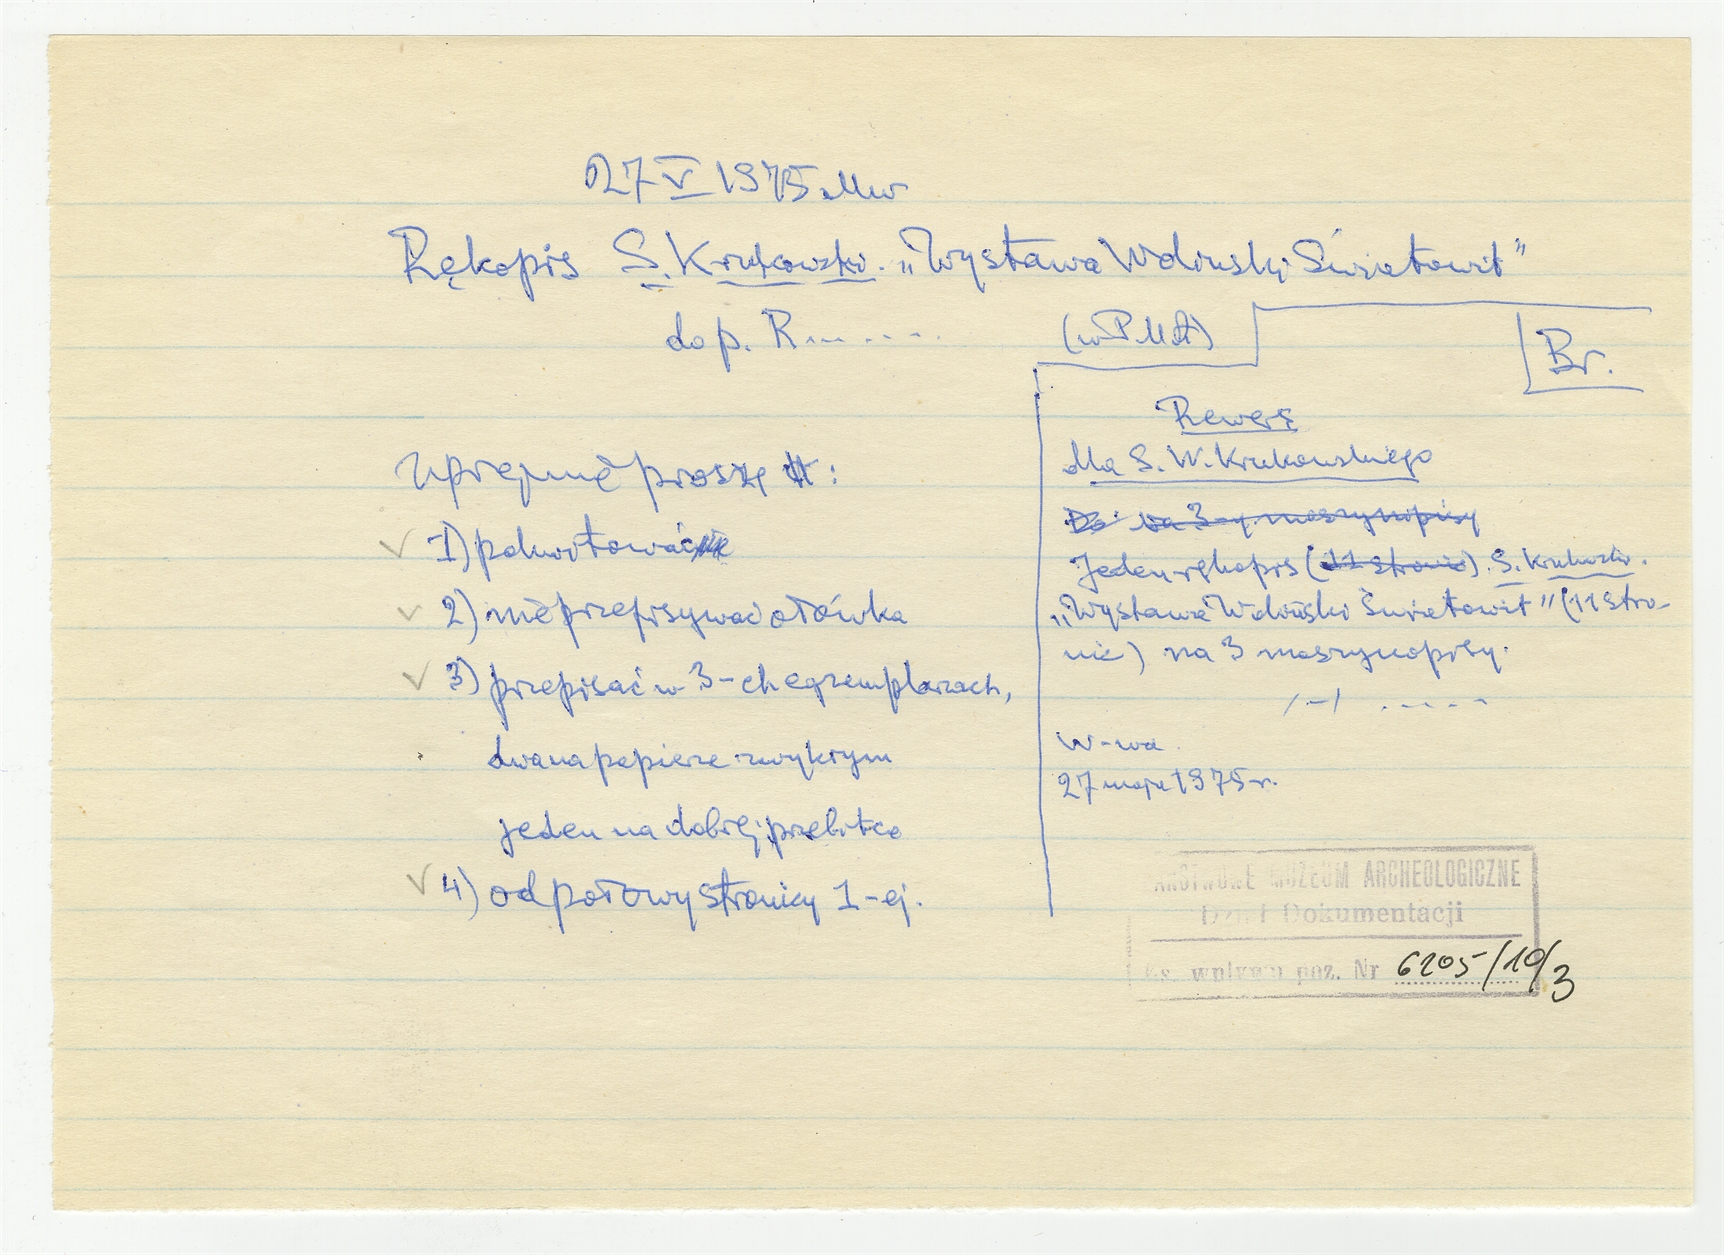 27 V 1975
Rękopis S. Krukowski. „Wystawa Woliński Światowit”
do p. R.......
(w PMA)
Br.
Uprzejmie proszę :
1) pokwitować
2) nie przepisywać ołówka
3) przepisać w 3-ch egzemplarzach,
dwa na papierze zwykłym
jeden na dobrej przebitce
4) od połowy stronicy 1-ej.
Rewers
dla S. W. Krukowskiego
na 3-y maszynopisy
Jeden rękopis (11 stronic). S. Krukowski.
„Wystawa Woliński Światowit” (11 stro-
nic) na 3 maszynopisy.
/-/ .....
W-wa
27 maja 1975 r.
MUZEUM ARCHEOLOGICZNE
Dział Dokumentacji
Ks. wpływu poz. Nr 6205/10/3